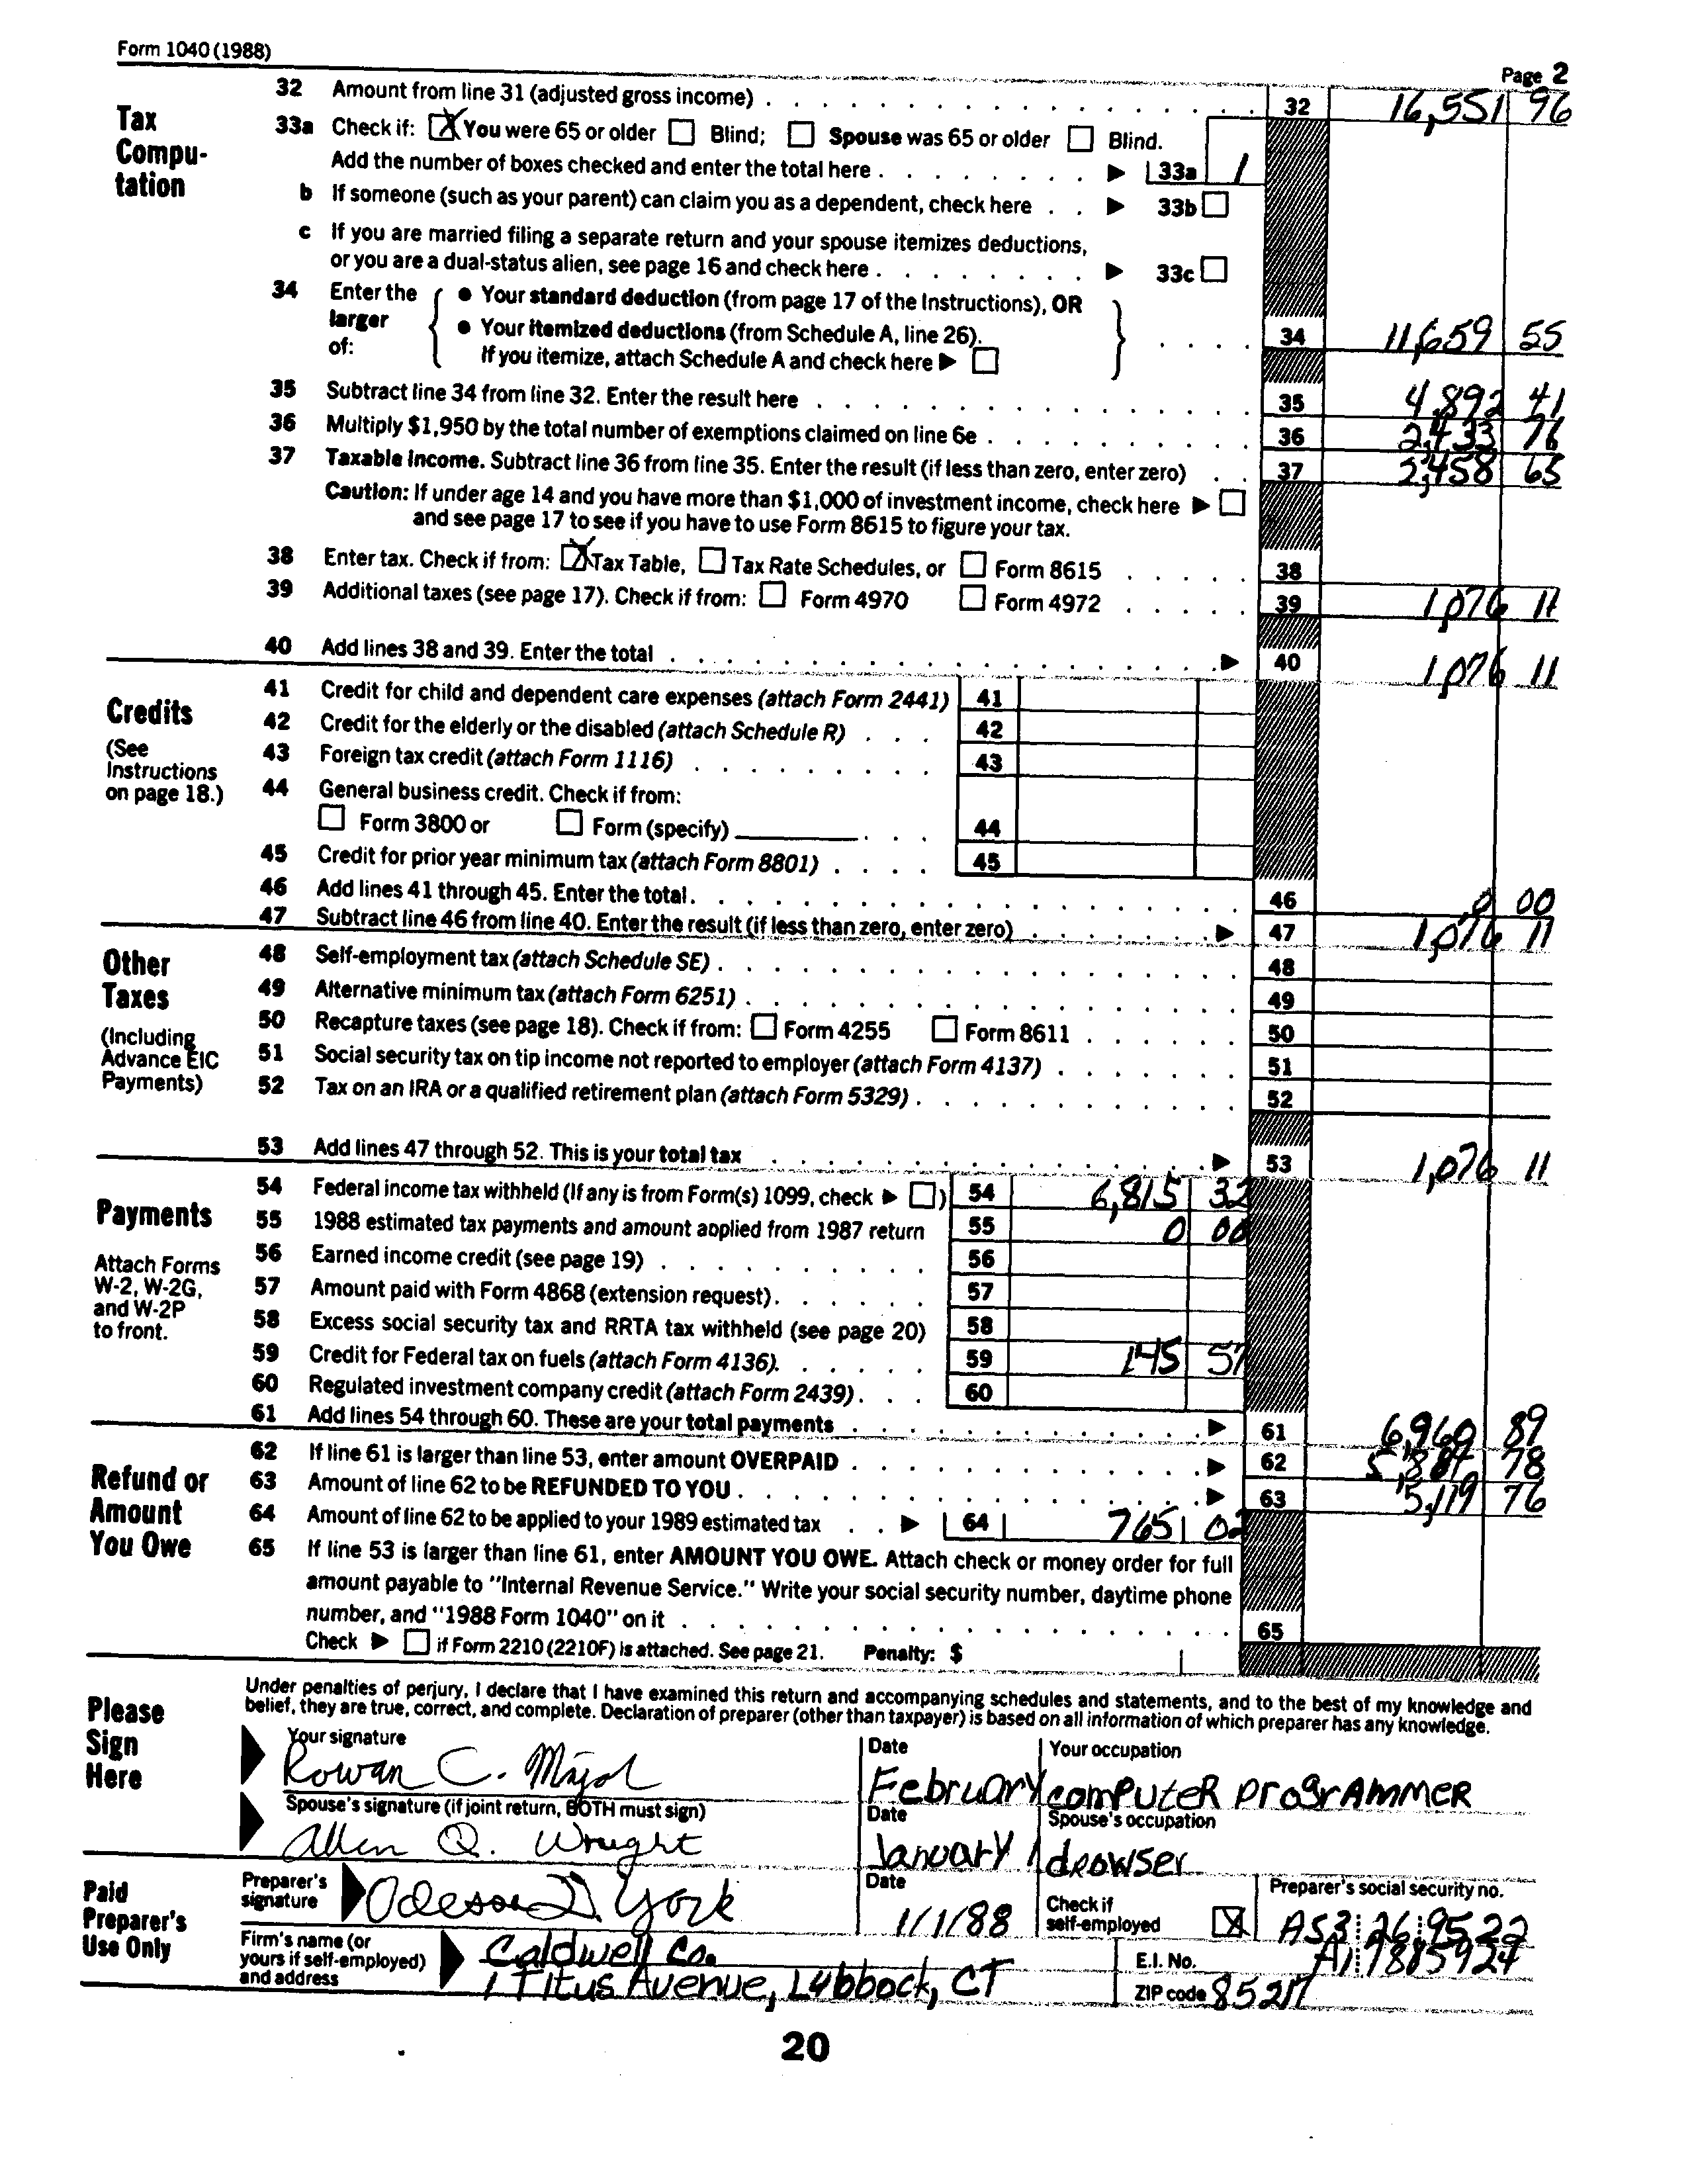 Form 1040 (1988)
Page 2
Tax Compu-tation
32 Amount from line 31 (adjusted gross income) 32 16,551 96
33a Check if: You were 65 or older Blind; Spouse was 65 or older Blind.
Add the number of boxes checked and enter the total here 33a 1
b If someone (such as your parent) can claim you as a dependent, check here 33b
c If you are married filing a separate return and your spouse itemizes deductions,
or you are a dual-status alien, see page 16 and check here 33c
34 Enter the larger of:
• Your standard deduction (from page 17 of the Instructions), OR
• Your itemized deductions (from Schedule A, line 26).
If you itemize, attach Schedule A and check here
34 11,659 55
35 Subtract line 34 from line 32. Enter the result here 35 4,892 41
36 Multiply $1,950 by the total number of exemptions claimed on line 6e 36 2,433 76
37 Taxable income. Subtract line 36 from line 35. Enter the result (if less than zero, enter zero) 37 2,458 65
Caution: If under age 14 and you have more than $1,000 of investment income, check here
and see page 17 to see if you have to use Form 8615 to figure your tax.
38 Enter tax. Check if from: Tax Table, Tax Rate Schedules, or Form 8615 38
39 Additional taxes (see page 17). Check if from: Form 4970 Form 4972 39 1,076 11
40 Add lines 38 and 39. Enter the total 40 1,076 11
Credits
(See Instructions on page 18.)
41 Credit for child and dependent care expenses (attach Form 2441) 41
42 Credit for the elderly or the disabled (attach Schedule R) 42
43 Foreign tax credit (attach Form 1116) 43
44 General business credit. Check if from:
Form 3800 or Form (specify) 44
45 Credit for prior year minimum tax (attach Form 8801) 45
46 Add lines 41 through 45. Enter the total. 46 0 00
47 Subtract line 46 from line 40. Enter the result (if less than zero, enter zero) 47 1,076 11
Other Taxes
(Including Advance EIC Payments)
48 Self-employment tax (attach Schedule SE) 48
49 Alternative minimum tax (attach Form 6251) 49
50 Recapture taxes (see page 18). Check if from: Form 4255 Form 8611 50
51 Social security tax on tip income not reported to employer (attach Form 4137) 51
52 Tax on an IRA or a qualified retirement plan (attach Form 5329) 52
53 Add lines 47 through 52. This is your total tax 53 1,076 11
Payments
Attach Forms W-2, W-2G, and W-2P to front.
54 Federal income tax withheld (If any is from Form(s) 1099, check ) 54 6,815 32
55 1988 estimated tax payments and amount applied from 1987 return 55 0 00
56 Earned income credit (see page 19) 56
57 Amount paid with Form 4868 (extension request) 57
58 Excess social security tax and RRTA tax withheld (see page 20) 58
59 Credit for Federal tax on fuels (attach Form 4136). 59 145 57
60 Regulated investment company credit (attach Form 2439) 60
61 Add lines 54 through 60. These are your total payments 61 6,960 89
Refund or Amount You Owe
62 If line 61 is larger than line 53, enter amount OVERPAID 62 5,884 78
63 Amount of line 62 to be REFUNDED TO YOU 63 5,119 76
64 Amount of line 62 to be applied to your 1989 estimated tax 64 765 02
65 If line 53 is larger than line 61, enter AMOUNT YOU OWE. Attach check or money order for full
amount payable to "Internal Revenue Service." Write your social security number, daytime phone
number, and "1988 Form 1040" on it 65
Check if Form 2210 (2210F) is attached. See page 21. Penalty: $
Please Sign Here
Under penalties of perjury, I declare that I have examined this return and accompanying schedules and statements, and to the best of my knowledge and
belief, they are true, correct, and complete. Declaration of preparer (other than taxpayer) is based on all information of which preparer has any knowledge.
Your signature Date Your occupation
Rowan C. Major February computer programmer
Spouse's signature (if joint return, BOTH must sign) Date Spouse's occupation
Allen Q. Wright January 1 drowser
Paid Preparer's Use Only
Preparer's signature Odeson D. York Date 1/1/88 Check if self-employed X Preparer's social security no. AS3 26 9522
Firm's name (or yours if self-employed) and address Caldwell Co. E.I. No. A1 7885924
1 Titus Avenue, Lubbock, CT ZIP code 85217
20